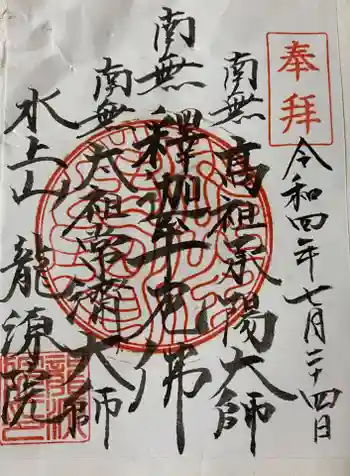 奉拝
令和四年七月二十四日
南無高祖承陽大師
南無釋迦牟尼佛
南無太祖常濟大師
水上山 龍源院